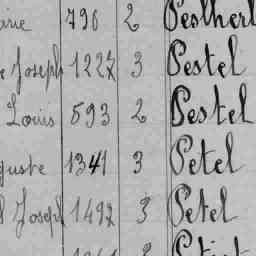 796 2 Pestherl
e Joseph 1227 3 Pestel
Louis 593 2 Pestel
guste 1341 3 Petel
Joseph 1497 3 Petel